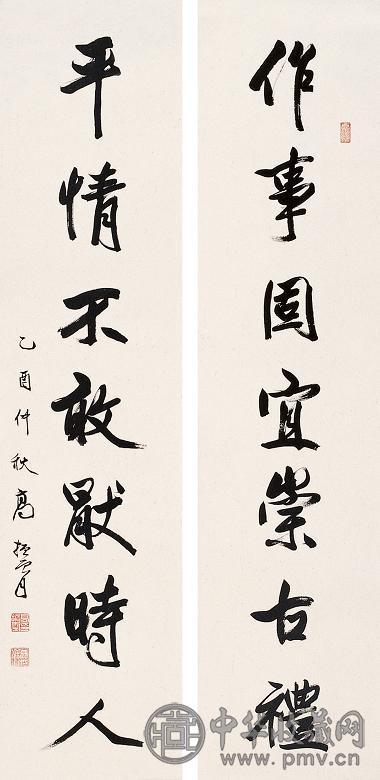 作事固宜崇古禮
平情不敢猒時人
乙酉仲秋高振霄
中华收藏网
www.pmv.cn